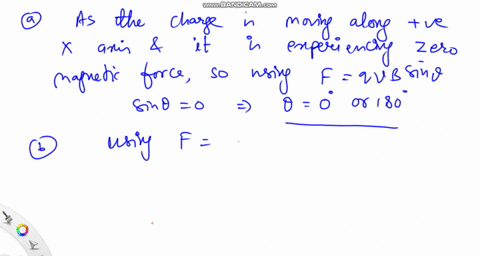 WWW.BANDICAM.COM
(a) As the charge is moving along +ve
X axis & it is experiencing zero
magnetic force, so using F = qvB sinθ
sinθ = 0 ⇒ θ = 0° or 180°
(b) using F =